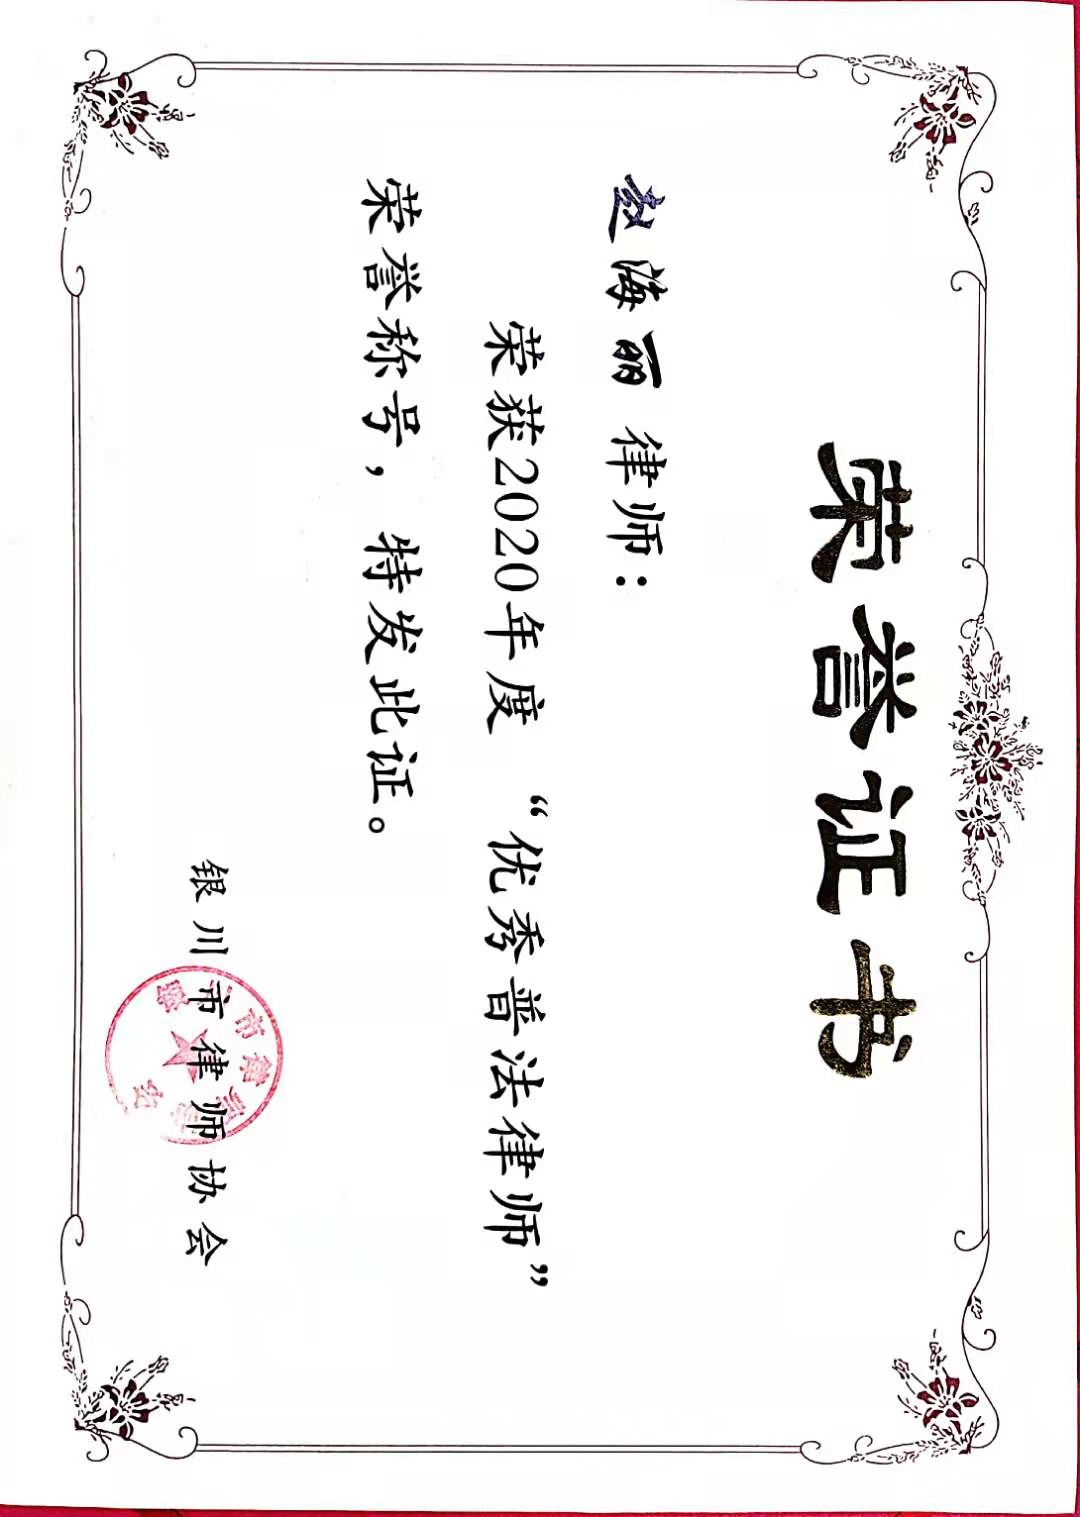 荣誉证书
赵海丽 律师：
荣获2020年度 “优秀普法律师”
荣誉称号，特发此证。
银川市律师协会